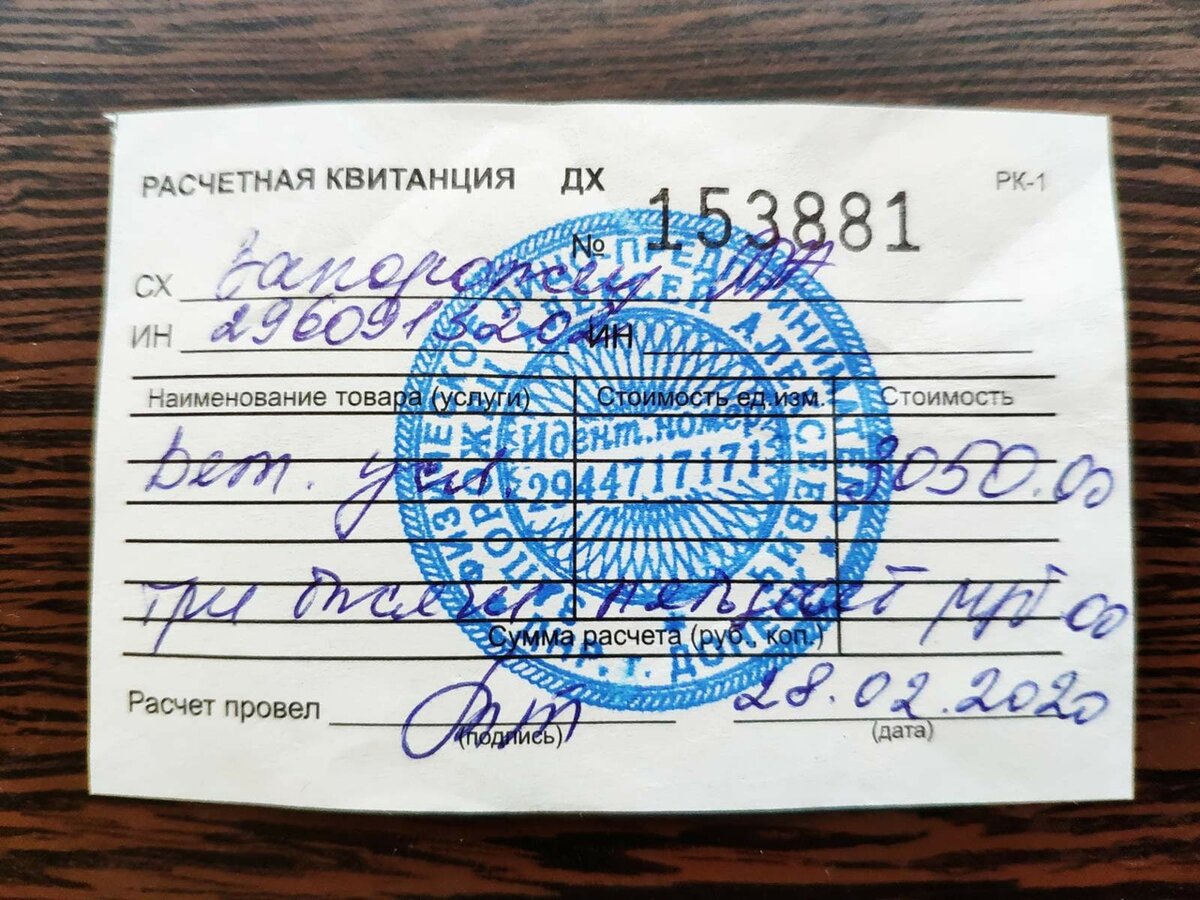 РАСЧЕТНАЯ КВИТАНЦИЯ ДХ РК-1
№ 153881
СХ
ИН 2960913202 ИН
Наименование товара (услуги) Стоимость ед.изм. Стоимость
Вет. усл. 3050.00
Три тысячи пятьдесят 00
Сумма расчета (руб., коп.)
Расчет провел 28.02.2020
(подпись) (дата)
ФИЗИЧЕСКОЕ ЛИЦО-ПРЕДПРИНИМАТЕЛЬ
АЛЕКСЕЕВИЧ
Идент.номер
2944717171